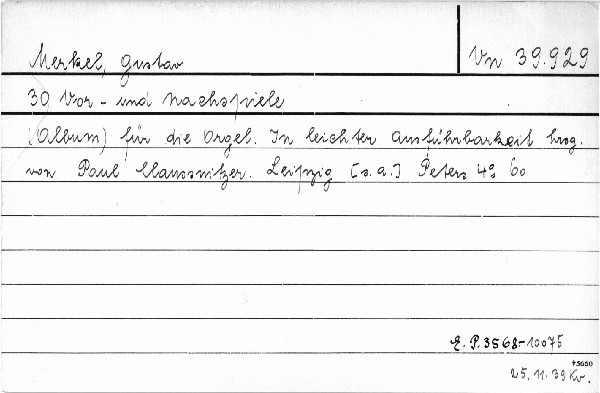 Merkel, Gustav
Vn 39.929
30 Vor- und Nachspiele
(Album) für die Orgel. In leichter Ausführbarkeit hrsg.
von Paul Claussnitzer. Leipzig [s.a.] Peters 4° 60
E. P. 3568-10075
+5660
25. 11. 39 Kv.